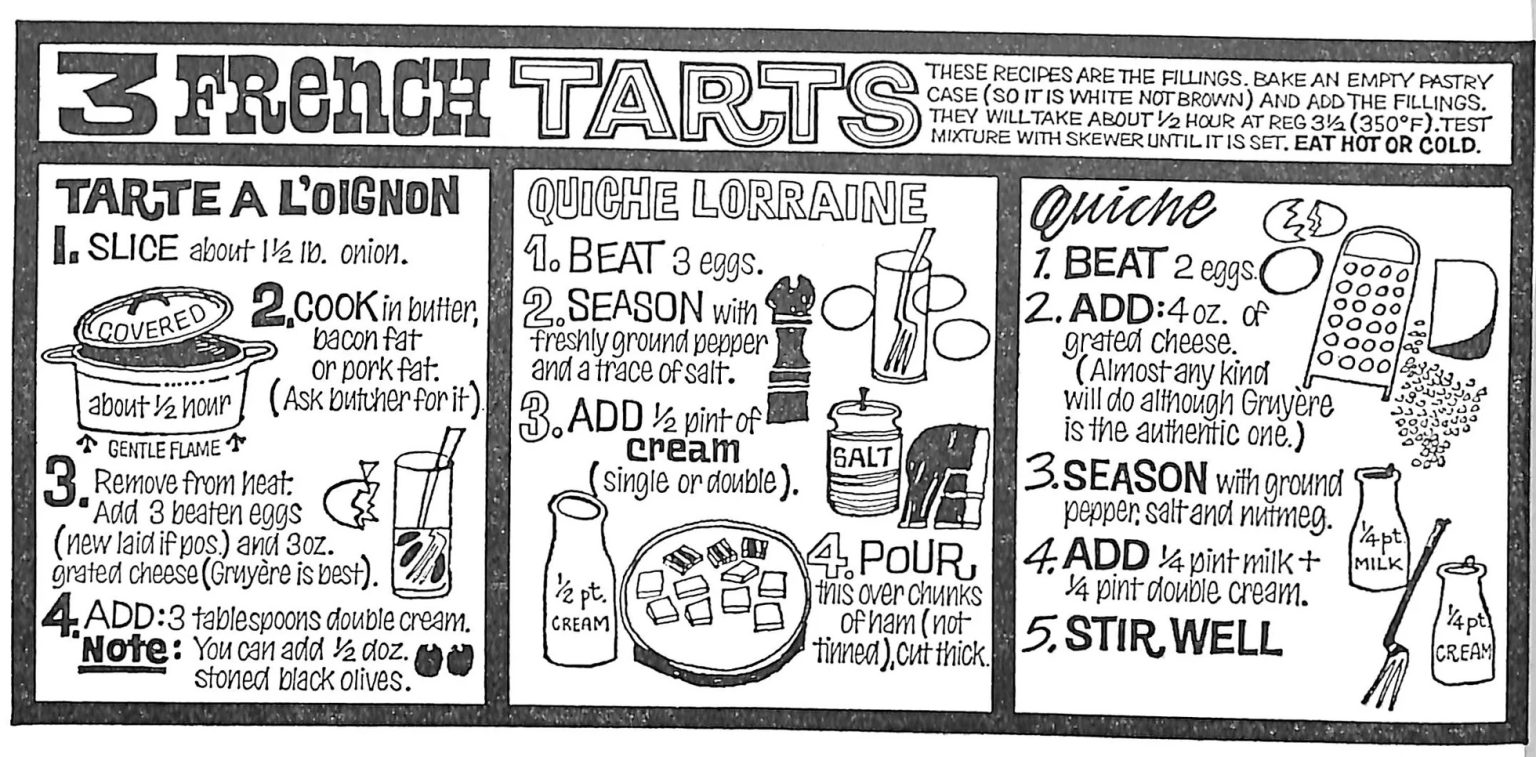 3 FRENCH TARTS
THESE RECIPES ARE THE FILLINGS. BAKE AN EMPTY PASTRY
CASE (SO IT IS WHITE NOT BROWN) AND ADD THE FILLINGS.
THEY WILL TAKE ABOUT ½ HOUR AT REG 3½ (350°F). TEST
MIXTURE WITH SKEWER UNTIL IT IS SET. EAT HOT OR COLD.
TARTE A L'OIGNON
1. SLICE about 1½ lb. onion.
COVERED
about ½ hour
GENTLE FLAME
2. COOK in butter,
bacon fat
or pork fat.
(Ask butcher for it)
3. Remove from heat.
Add 3 beaten eggs
(new laid if pos.) and 3oz.
grated cheese (Gruyère is best).
4. ADD: 3 tablespoons double cream.
Note: You can add ½ doz.
stoned black olives.
QUICHE LORRAINE
1. BEAT 3 eggs.
2. SEASON with
freshly ground pepper
and a trace of salt.
3. ADD ½ pint of
cream
(single or double).
SALT
½ pt.
CREAM
4. POUR
this over chunks
of ham (not
tinned), cut thick.
Quiche
1. BEAT 2 eggs.
2. ADD: 4 oz. of
grated cheese.
(Almost any kind
will do although Gruyère
is the authentic one.)
3. SEASON with ground
pepper, salt and nutmeg.
4. ADD ¼ pint milk +
¼ pint double cream.
5. STIR WELL
¼ pt.
MILK
¼ pt.
CREAM